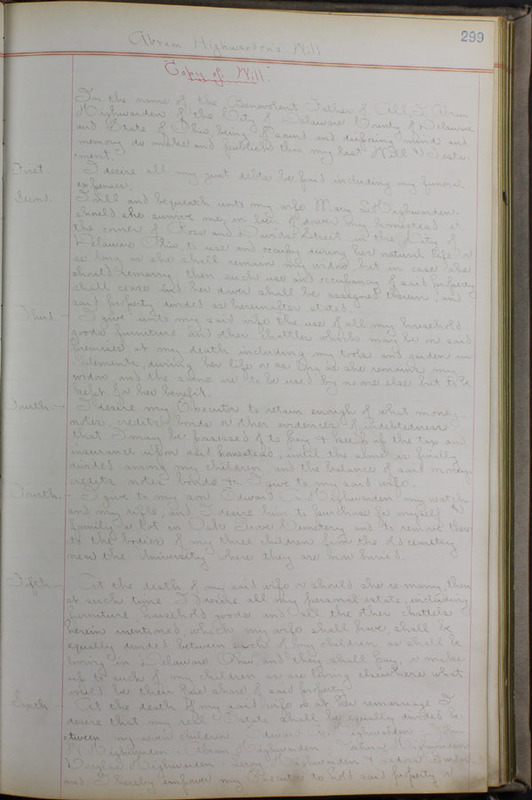 299
Abram Highwarden's Will
Copy of Will
In the name of the Benevolent Father of All, I Abram
Highwarden of the City of Delaware County of Delaware
and State of Ohio, being of sound and disposing mind and
memory do make and publish this my last Will & Testa-
ment.
First. I desire all my just debts be paid including my funeral
expenses.
Second. I will and bequeath unto my wife Mary Highwarden
should she survive me, in lieu of dower my homestead at
the corner of Ross and Street in the City of
Delaware Ohio to use and occupy during her natural life or
as long as she shall remain my widow, but in case she
should remarry then such use and occupancy of said property
shall cease and her dower shall be assigned therein, and
said property divided as hereinafter stated.
Third - I give unto my said wife the use of all my household
goods furniture and other chattles which may be on said
premises at my death including my tools and garden im-
plements, during her life or as long as she remains my
widow and the same are to be used by no one else but to be
kept for her benefit.
Fourth - I desire my Executor to retain enough of what money
notes, credits, bonds or other evidences of indebtedness
that I may be possessed of to pay & keep up the tax and
insurance upon said homestead, until the same is finally
divided among my children, and the balance of said money
credits notes bonds &c I give to my said wife.
Fourth - I give to my son Edward Highwarden my watch
and my rifle, and I desire him to purchase for myself &
family a lot in Oak Grove Cemetery and to remove there
to the bodies of my three children from the old cemetery
near the University where they are now buried.
Fifth - At the death of my said wife or should she remarry then
at such time I desire all my personal estate, including
furniture household goods and all the other chattels
herein mentioned, which my wife shall have shall be
equally divided between such of my children, as shall be
living in Delaware Ohio and they shall pay, or make
up to such of my children as are living elsewhere what
would be their fair share of said property.
Sixth - At the death of my said wife or at her remarriage I
desire that my real Estate shall be equally divided be-
tween my seven children, Edward Highwarden, John
Highwarden Abram Highwarden Highwarden
Highwarden Highwarden &
and I hereby empower my Executor to hold said property or